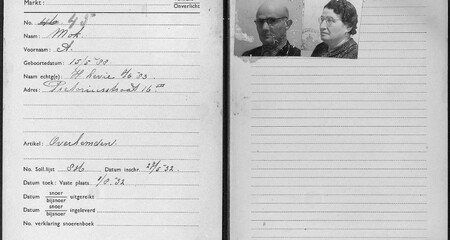 Markt:
Onverlicht
No. 46 95
Naam: Mok.
Voornaam: A.
Geboortedatum: 15/5 '80
Naam echtg(e): H. Levie 4/6 '83
Adres: Pretoriusstraat 16 III
Artikel: Overhemden.
No. Soll.lijst 846 Datum inschr. 27/5 '32
Datum toek: Vaste plaats 1/8 - 32
Datum snoer bijsnoer uitgereikt
Datum snoer bijsnoer ingeleverd
No. verklaring snoerenboek :